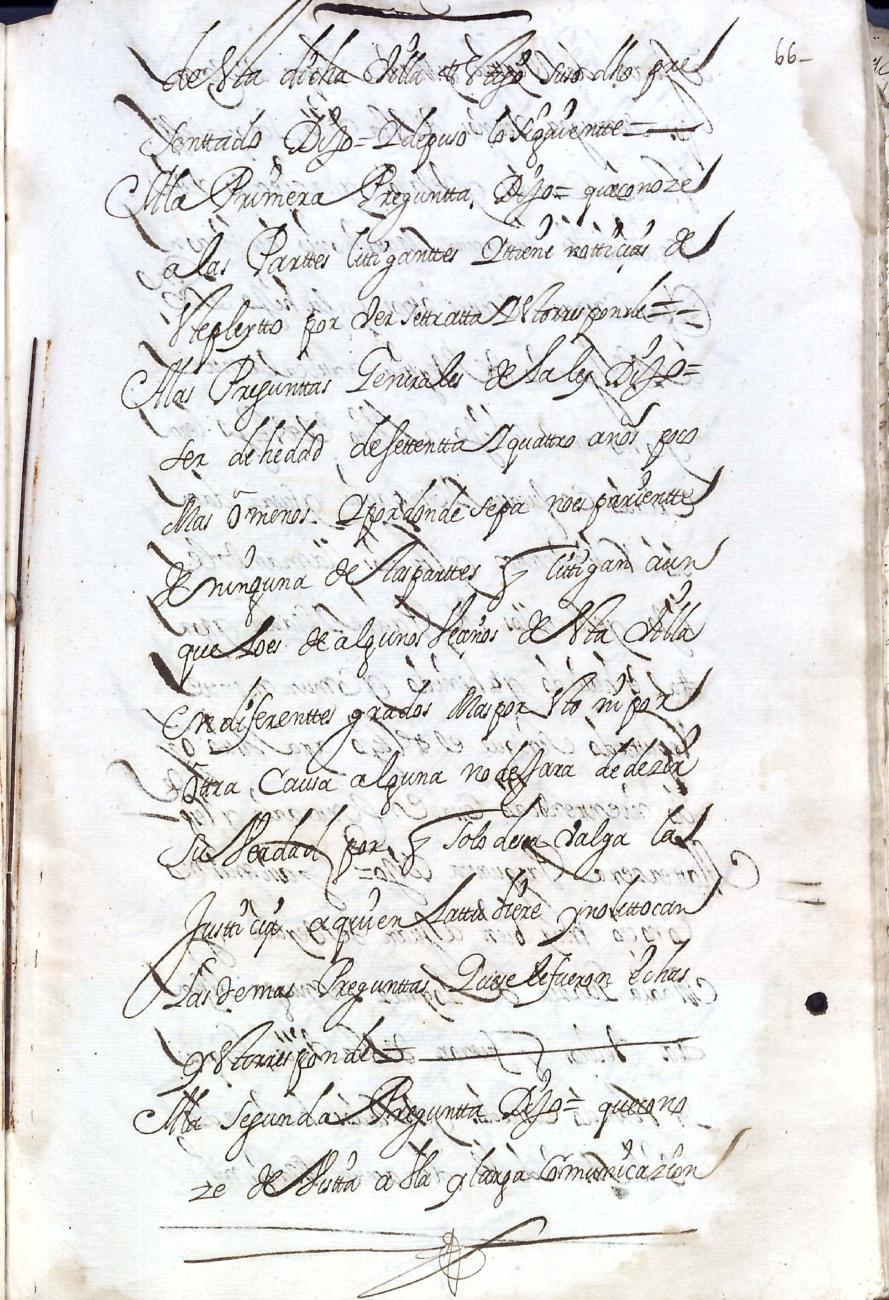 66-
de Esta dicha Villa tt° Suso dho pre
senttado Dijo= Y depuso lo Siguientte=
A la Primera Preguntta, Dijo= que conoze
a las Parttes littiganttes Y ttiene notticias de
Este pleytto por der settratta Y Esto rresponde=
A las Preguntas Generales de la ley Dijo=
ser de hedad de settentta Y quattro anos poco
Mas ô menos. Y por donde sepa no es parientte
de ninguna de las parttes q littigan aun
que lo es de algunos Vezinos de Esta Villa
En diferenttes grados Mas por Esto ni por
ôtra Causa alguna no dejara de dezir
Su Verdad por q solo desea Valga la
Justticia a quien la ttubiere y no le ttocan
las demas Pregunttas Que se le fueron êchas
y Esto rresponde=
A la segunda Preguntta Dijo= que cono
ze de Vistta a bla y larga Comunicazion